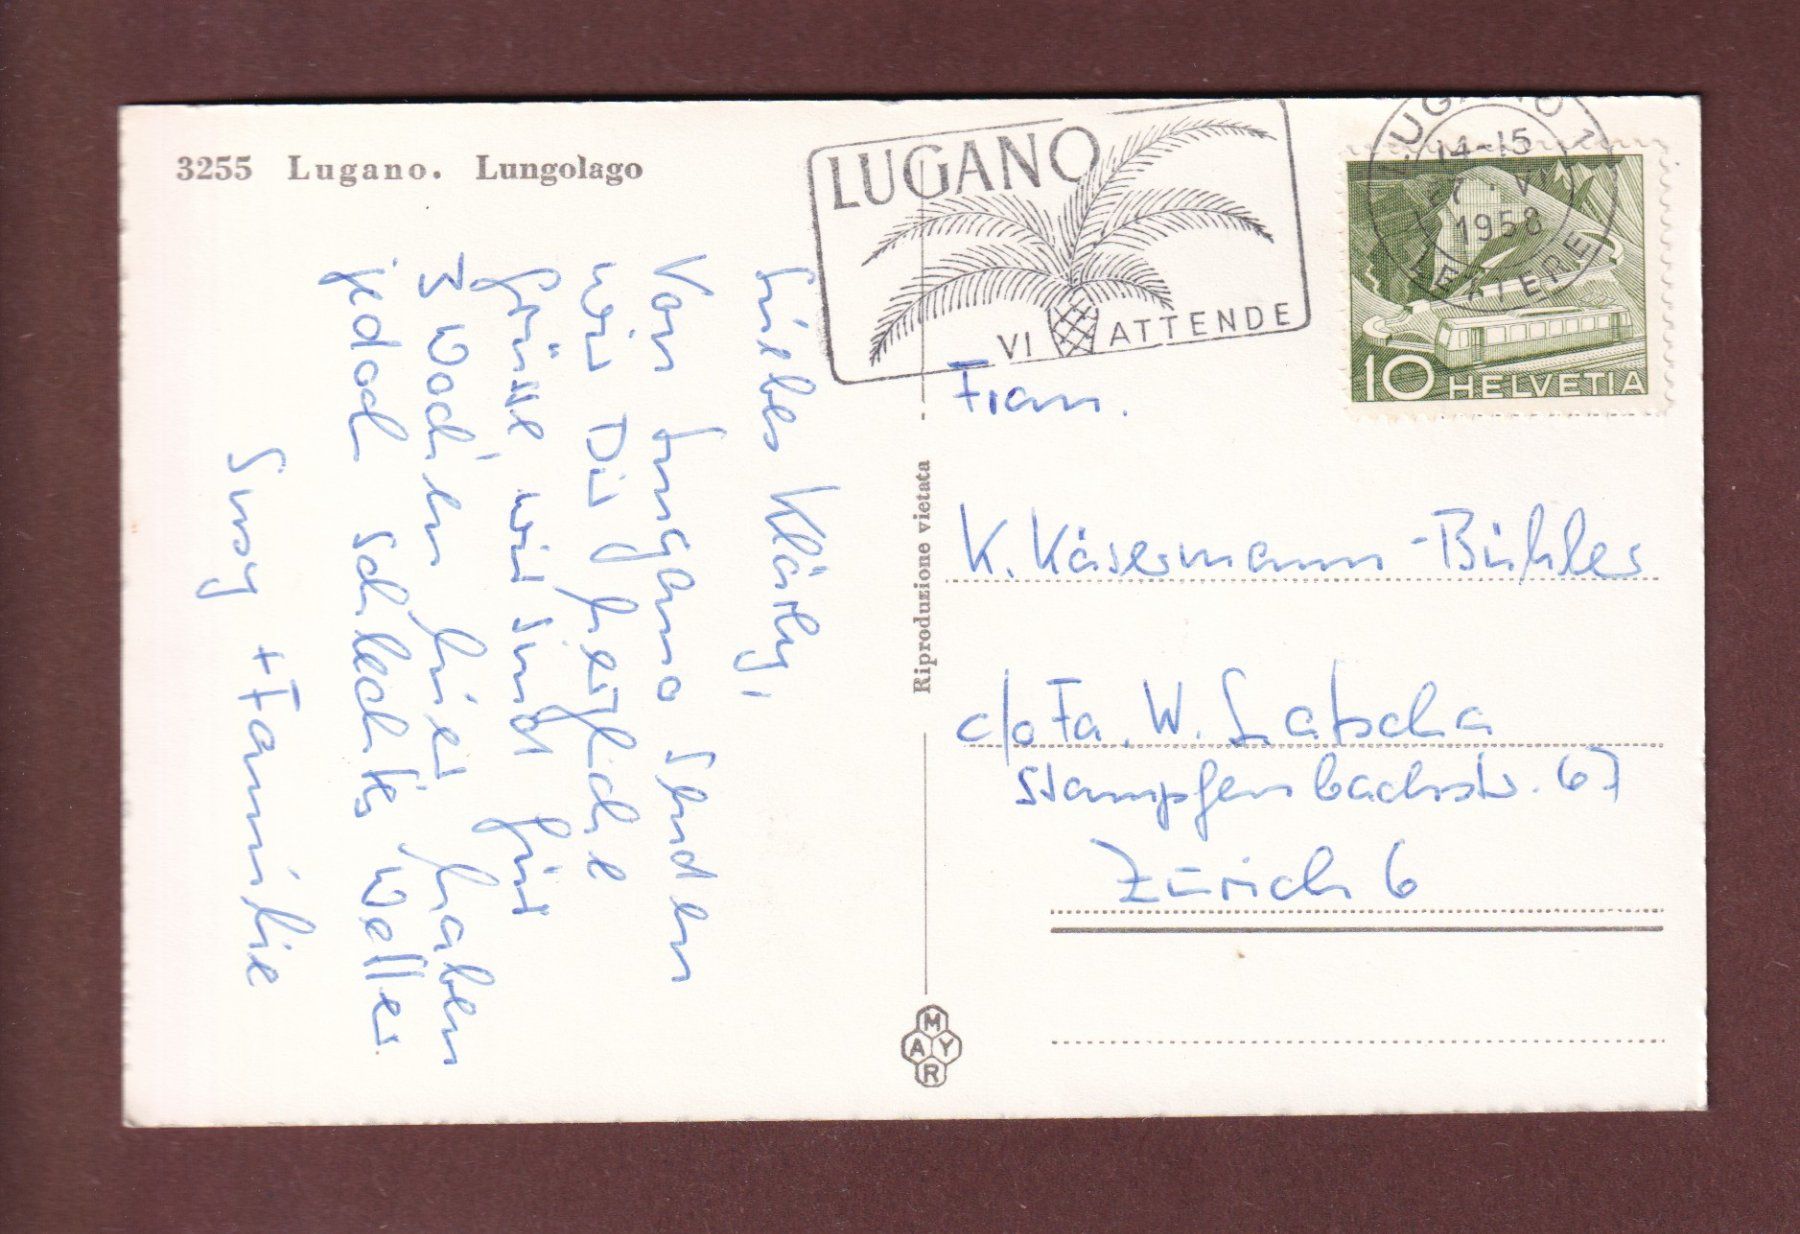 3255 Lugano. Lungolago
LUGANO
VI ATTENDE
LUGANO 1
14-15
VI
1958
LETTERE
10 HELVETIA
Liebes Kläry,
Von Lugano senden
wir Dir herzliche
Grüsse wir sind für
3 Wochen hier haben
jedoch schlechtes Wetter.
Susy + Familie
Riproduzione vietata
MAYR
Frau.
K. Käsermann-Bühler
c/o Fa. W. Labscha
Stampfenbachstr. 67
Zürich 6